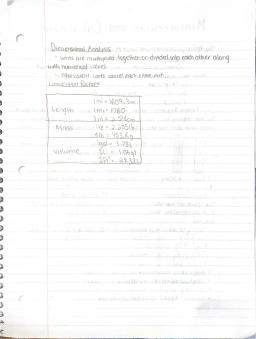 Dimensional Analysis
- units are multiplied together or divided into each other along
with numerical values
- equivalent units cancel each other out
Conversion Factors
Length
1mi = 1609.3m
1mi = 1760
1in = 2.54cm
Mass
1kg = 2.205lb
1lb = 453.6g
Volume
1gal = 3.78L
1L = 1.06qt
1ft³ = 28.32L